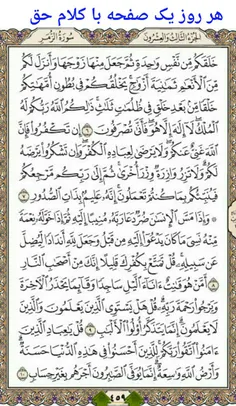 هر روز یک صفحه با کلام حق
الجزء الثالث والعشرون سورة الزمر
خَلَقَكُم مِّن نَّفْسٍ وَاحِدَةٍ ثُمَّ جَعَلَ مِنْهَا زَوْجَهَا وَأَنزَلَ لَكُم
مِّنَ الْأَنْعَامِ ثَمَانِيَةَ أَزْوَاجٍ يَخْلُقُكُمْ فِي بُطُونِ أُمَّهَاتِكُمْ
خَلْقًا مِّن بَعْدِ خَلْقٍ فِي ظُلُمَاتٍ ثَلَاثٍ ذَٰلِكُمُ اللَّهُ رَبُّكُمْ لَهُ
الْمُلْكُ لَا إِلَٰهَ إِلَّا هُوَ فَأَنَّىٰ تُصْرَفُونَ ٦ إِن تَكْفُرُوا فَإِنَّ
اللَّهَ غَنِيٌّ عَنكُمْ وَلَا يَرْضَىٰ لِعِبَادِهِ الْكُفْرَ وَإِن تَشْكُرُوا يَرْضَهُ
لَكُمْ وَلَا تَزِرُ وَازِرَةٌ وِزْرَ أُخْرَىٰ ثُمَّ إِلَىٰ رَبِّكُم مَّرْجِعُكُمْ
فَيُنَبِّئُكُم بِمَا كُنتُمْ تَعْمَلُونَ إِنَّهُ عَلِيمٌ بِذَاتِ الصُّدُورِ ٧
وَإِذَا مَسَّ الْإِنسَانَ ضُرٌّ دَعَا رَبَّهُ مُنِيبًا إِلَيْهِ ثُمَّ إِذَا خَوَّلَهُ نِعْمَةً
مِّنْهُ نَسِيَ مَا كَانَ يَدْعُو إِلَيْهِ مِن قَبْلُ وَجَعَلَ لِلَّهِ أَندَادًا لِّيُضِلَّ
عَن سَبِيلِهِ قُلْ تَمَتَّعْ بِكُفْرِكَ قَلِيلًا إِنَّكَ مِنْ أَصْحَابِ النَّارِ
٨ أَمَّنْ هُوَ قَانِتٌ آنَاءَ اللَّيْلِ سَاجِدًا وَقَائِمًا يَحْذَرُ الْآخِرَةَ
وَيَرْجُو رَحْمَةَ رَبِّهِ قُلْ هَلْ يَسْتَوِي الَّذِينَ يَعْلَمُونَ وَالَّذِينَ
لَا يَعْلَمُونَ إِنَّمَا يَتَذَكَّرُ أُولُو الْأَلْبَابِ ٩ قُلْ يَا عِبَادِ الَّذِينَ
آمَنُوا اتَّقُوا رَبَّكُمْ لِلَّذِينَ أَحْسَنُوا فِي هَٰذِهِ الدُّنْيَا حَسَنَةٌ
وَأَرْضُ اللَّهِ وَاسِعَةٌ إِنَّمَا يُوَفَّى الصَّابِرُونَ أَجْرَهُم بِغَيْرِ حِسَابٍ ١٠
٤٥٩